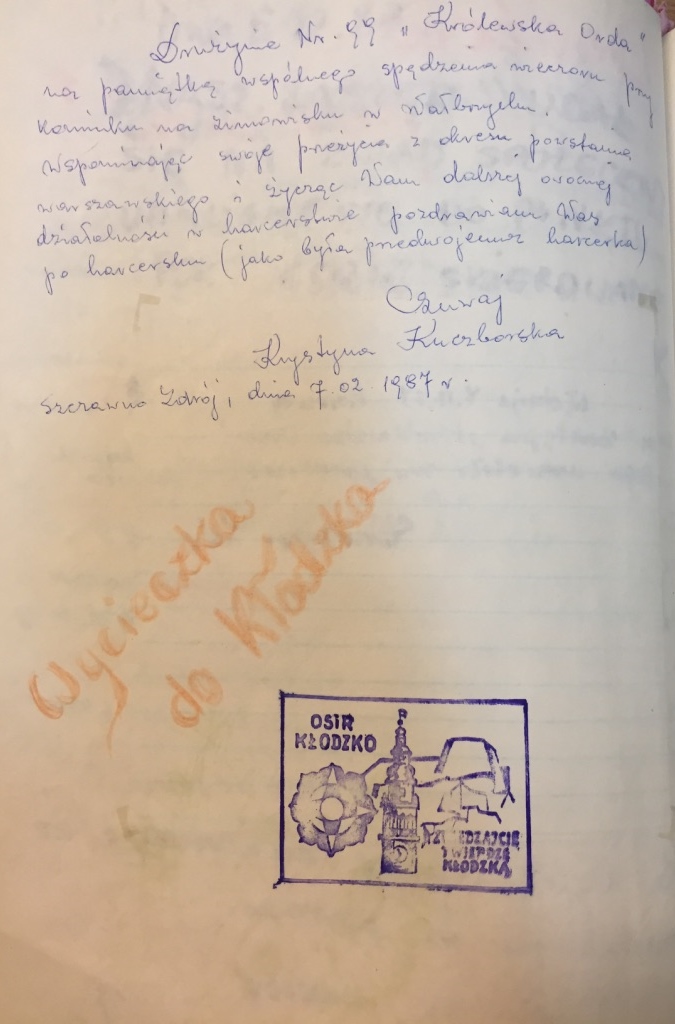 Drużynie Nr. 99 „Królewska Orda"
na pamiątkę wspólnego spędzenia wieczoru przy
kominku na zimowisku w Wałbrzychu.
Wspominając swoje przeżycia z okresu powstania
warszawskiego i życząc Wam dalszej owocnej
działalności w harcerstwie pozdrawiam Was
po harcersku (jako była przedwojenna harcerka)
Czuwaj
Krystyna Kuczborska
Szczawno Zdrój, dnia 7.02.1987 r.
Wycieczka
do Kłodzka
OSIR
KŁODZKO
ZWIEDZAJCIE
TWIERDZĘ
KŁODZKĄ